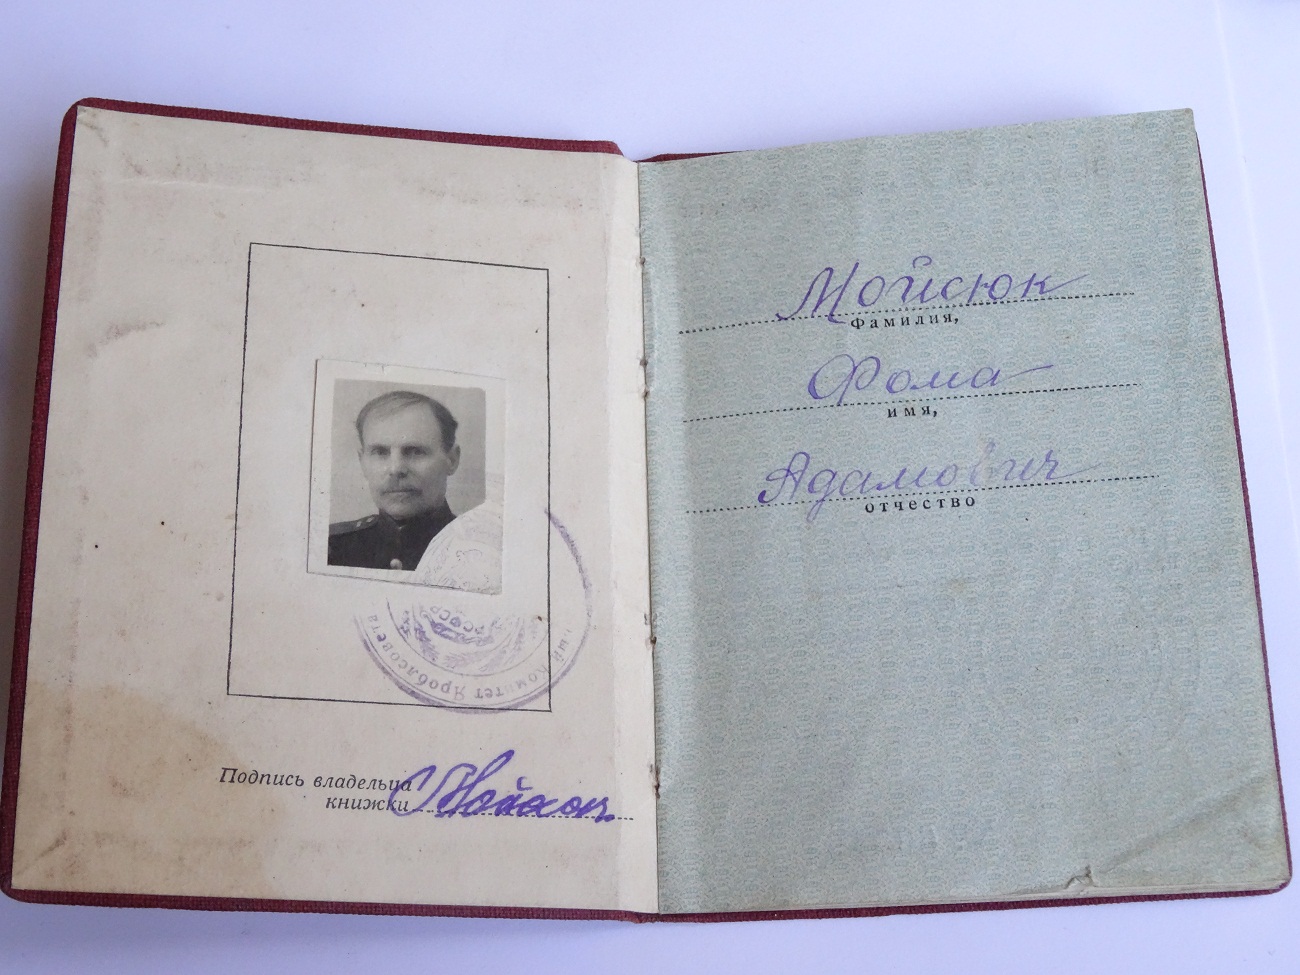 РСФСР
ный комитет Яроблсовета
Подпись владельца
книжки
Мойсюк
Фамилия,
Фома
имя,
Адамович
отчество